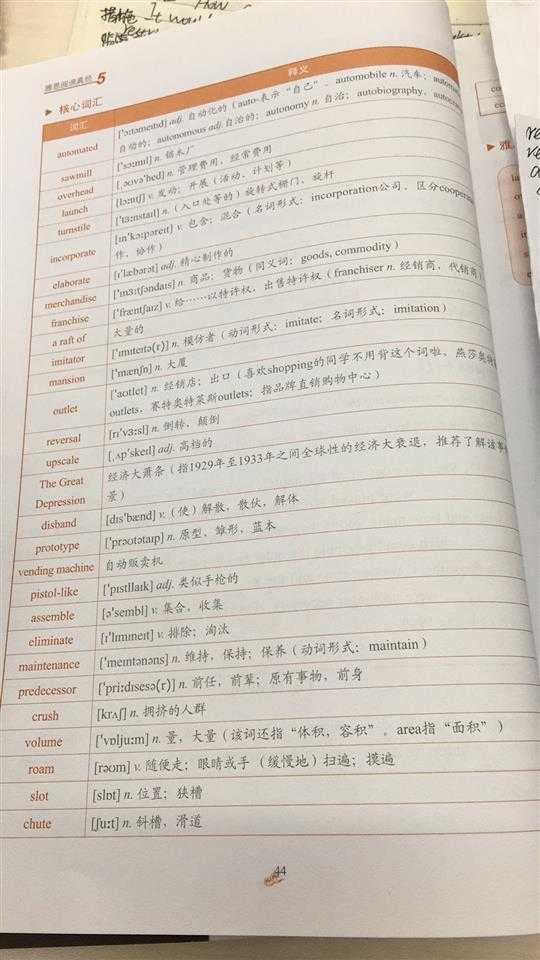 措施
How
It would
雅思阅读真经5
▶ 核心词汇
词汇 释义
automated ['ɔːtəmeɪtɪd] adj. 自动化的（auto-表示“自己”，automobile n. 汽车；
自动的；autonomous adj.自治的；autonomy n. 自治；autobiography,
sawmill ['sɔːmɪl] n. 锯木厂
overhead [ˌəʊvə'hed] n. 管理费用，经常费用
launch [lɔːntʃ] v. 发动；开展（活动、计划等）
turnstile ['tɜːnstaɪl] n.（入口处等的）旋转式栅门，旋杆
incorporate [ɪn'kɔːpəreɪt] v. 包含；混合（名词形式：incorporation公司，区分
作，协作）
elaborate [ɪ'læbərət] adj. 精心制作的
merchandise ['mɜːtʃəndaɪs] n. 商品；货物（同义词：goods, commodity）
franchise ['fræntʃaɪz] v. 给……以特许权，出售特许权（franchiser n. 经销商，代销商）
a raft of 大量的
imitator ['ɪmɪteɪtə(r)] n. 模仿者（动词形式：imitate；名词形式：imitation）
mansion ['mænʃn] n. 大厦
outlet ['aʊtlet] n. 经销店；出口（喜欢shopping的同学不用背这个词啦，燕莎奥特
outlets，赛特奥特莱斯outlets；指品牌直销购物中心）
reversal [rɪ'vɜːsl] n. 倒转，颠倒
upscale [ˌʌp'skeɪl] adj. 高档的
The Great Depression 经济大萧条（指1929年至1933年之间全球性的经济大衰退，推荐了解该事
景）
disband [dɪs'bænd] v.（使）解散，散伙，解体
prototype ['prəʊtətaɪp] n. 原型，雏形，蓝本
vending machine 自动贩卖机
pistol-like ['pɪstllaɪk] adj. 类似手枪的
assemble [ə'sembl] v. 集合，收集
eliminate [ɪ'lɪmɪneɪt] v. 排除；淘汰
maintenance ['meɪntənəns] n. 维持，保持；保养（动词形式：maintain）
predecessor ['priːdɪsesə(r)] n. 前任，前辈；原有事物，前身
crush [krʌʃ] n. 拥挤的人群
volume ['vɒljuːm] n. 量，大量（该词还指“体积，容积”。area指“面积”）
roam [rəʊm] v. 随便走；眼睛或手（缓慢地）扫遍；摸遍
slot [slɒt] n. 位置；狭槽
chute [ʃuːt] n. 斜槽，滑道
44
▶ 雅